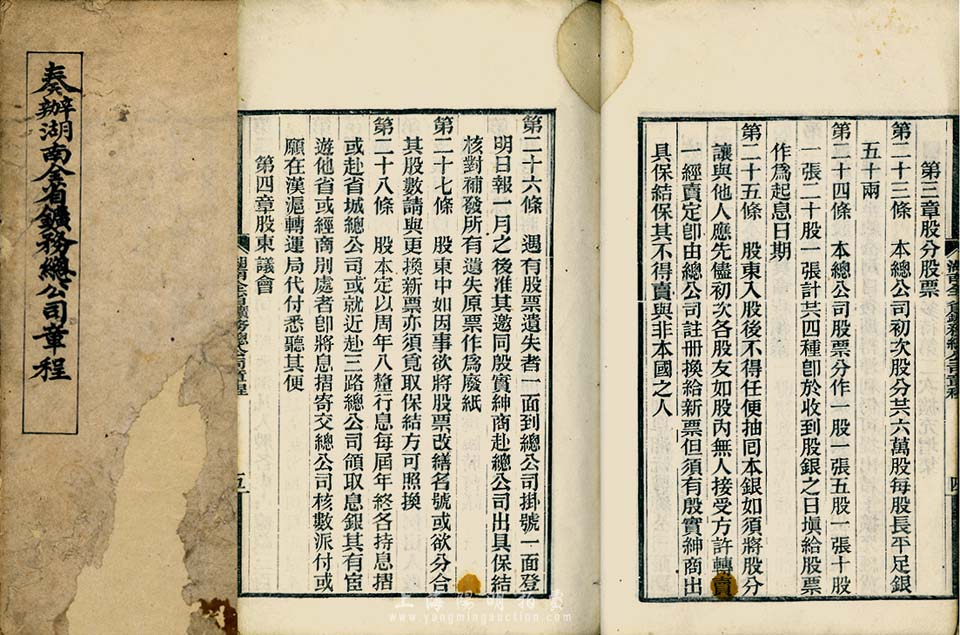 奏辦湖南全省鑛務總公司章程
第三章股分股票
第二十三條　本總公司初次股分共六萬股每股長平足銀
五十兩
第二十四條　本總公司股票分作一股一張五股一張十股
一張二十股一張計共四種卽於收到股銀之日塡給股票
作爲起息日期
第二十五條　股東入股後不得任便抽囘本銀如須將股分
讓與他人應先儘初次各股友如股內無人接受方許轉賣
一經賣定卽由總公司註册換給新票但須有殷實紳商出
具保結保其不得賣與非本國之人
湖南全省鑛務總公司章程
四
第二十六條　遇有股票遺失者一面到總公司掛號一面登
明日報一月之後准其邀同殷實紳商赴總公司出具保結
核對補發所有遺失原票作爲廢紙
第二十七條　股東中如因事欲將股票改繕名號或欲分合
其股數請與更換新票亦須覓取保結方可照換
第二十八條　股本定以周年八釐行息每屆年終各持息摺
或赴省城總公司或就近赴三路總公司領取息銀其有宦
遊他省或經商別處者卽將息摺寄交總公司核數派付或
願在漢滬轉運局代付悉聽其便
第四章股東議會
湖南全省鑛務總公司章程
五
上海陽明拍賣
www.yangmingauction.com